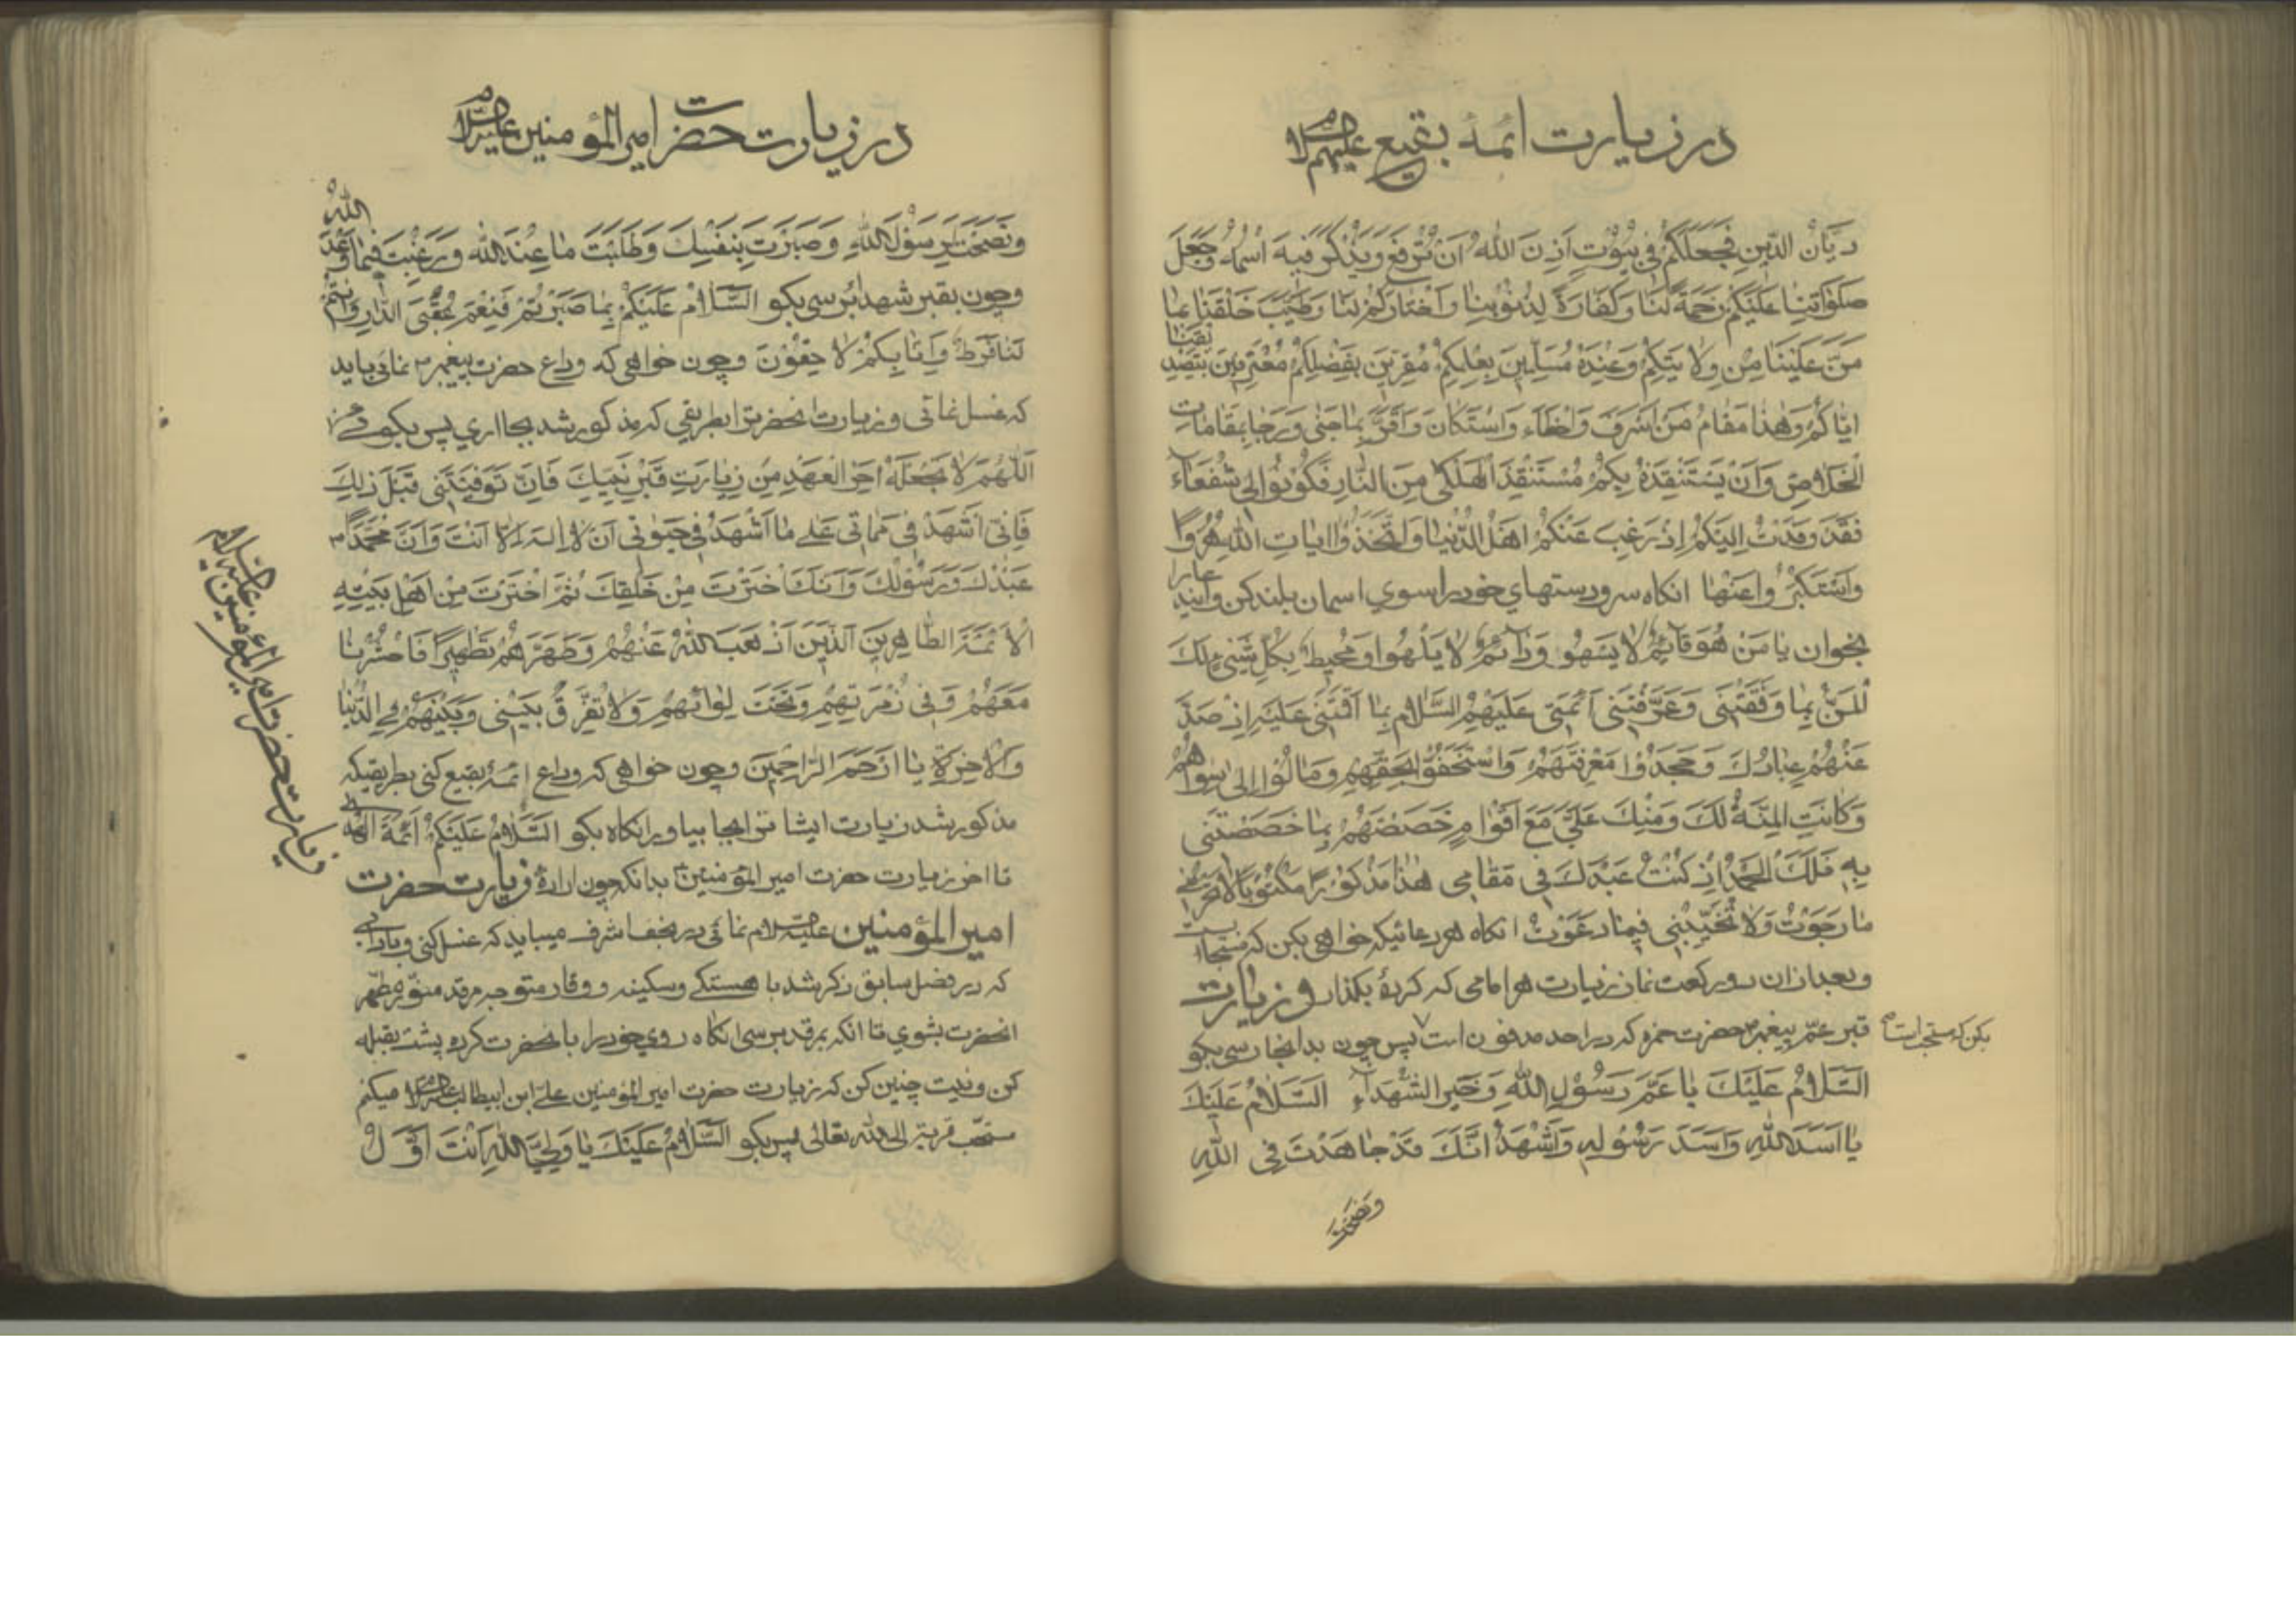 در زیارت ائمهٔ بقیع علیهم السلام
دَیَّانُ الدّینِ فَجَعَلَکُمْ فی بُیُوْتٍ اَذِنَ اللّٰهُ اَنْ تُرْفَعَ وَیُذْکَرَ فیهَ اسْمُهُ وَجَعَلَ
صَلَوٰاتِنٰا عَلَیْکُمْ رَحْمَةً لَنٰا وَکَفّٰارَةً لِذُنُوْبِنٰا وَاخْتٰارَکُمْ لَنٰا وَطَیَّبَ خَلْقَنٰا بِمٰا
مَنَّ عَلَیْنٰا مِنْ وِلٰایَتِکُمْ وَعِنْدَهُ مُسَلِّمینَ بِعِلْمِکُمْ مُقِرّینَ بِفَضْلِکُمْ مُعْتَرِفینَ بِتَصْدیقِنٰا
اِیّٰاکُمْ وَهٰذٰا مَقٰامُ مَنْ اَسْرَفَ وَاَخْطَاءَ وَاسْتَکٰانَ وَاَقَرَّ بِمٰا جَنٰی وَرَجٰا بِمَقٰامٰاتِ
الْخَلٰاصِ وَاَنْ یَسْتَنْقِذَهُ بِکُمْ مُسْتَنْقِذُ الْهَلْکٰی مِنَ النّٰارِ فَکُوْنُوْا لی شُفَعٰاءَ
فَقَدْ وَفَدْتُ اِلَیْکُمْ اِذْ رَغِبَ عَنْکُمْ اَهْلُ الدُّنْیٰا وَاتَّخَذُوْا اٰیٰاتِ اللّٰهِ هُزُوًا
وَاسْتَکْبَرُوْا عَنْهٰا انکاه سر و دستهای خود را سوی اسمان بلند کن و این دعا را
بخوان یٰا مَنْ هُوَ قٰائِمٌ لٰا یَسْهُوْ وَدٰائِمٌ لٰا یَلْهُوا وَمُحیطٌ بِکُلِّ شَیْئٍ لَکَ
الْمَنُّ بِمٰا وَفَّقْتَنی وَعَرَّفْتَنی اَئِمَّتی عَلَیْهِمُ السَّلٰامُ بِمٰا اَقَمْتَنی عَلَیْهِ اِذْ صَدَّ
عَنْهُمْ عِبٰادُکَ وَجَحَدُوْا مَعْرِفَتَهُمْ وَاسْتَخَفُّوْا بِحَقِّهِمْ وَمٰالُوْا اِلٰی سِوٰاهُمْ
وَکٰانَتِ الْمِنَّةُ لَکَ وَمِنْکَ عَلَیَّ مَعَ اَقْوٰامٍ خَصَصْتَهُمْ بِمٰا خَصَصْتَنی
بِهِ فَلَکَ الْحَمْدُ اِذْ کُنْتُ عِنْدَکَ فی مَقٰامی هٰذٰا مَذْکُوْرًا مَکْتُوْبًا لٰا تَحْرِمْنی
مٰا رَجَوْتُ وَلٰا تُخَیِّبْنی فیمٰا دَعَوْتُ انکاه هر دعائیکه خواهی بکن که مستجاب است
و بعد از ان دو رکعت نماز زیارت هر امامی که کردهٔ بکذار و زیارت
قبر عمّ پیغمبر حضرت حمزه که در احد مدفون است پس چون بدانجا رسی بکو
بکن که مستحب است
اَلسَّلٰامُ عَلَیْکَ یٰا عَمَّ رَسُوْلِ اللّٰهِ وَخَیْرَ الشُّهَدٰاءِ اَلسَّلٰامُ عَلَیْکَ
یٰا اَسَدَ اللّٰهِ وَاَسَدَ رَسُوْلِهِ وَاَشْهَدُ اَنَّکَ قَدْ جٰاهَدْتَ فِی اللّٰهِ
وَنَصَحْتَ
در زیارت حضرت امیر المؤمنین علیه السلام
وَنَصَحْتَ لِرَسُوْلِ اللّٰهِ وَصَبَرْتَ بِنَفْسِکَ وَطَلَبْتَ مٰا عِنْدَ اللّٰهِ وَرَغِبْتَ فیمٰا وَعَدَ اللّٰهُ
وچون بقبر شهدا برسی بکو اَلسَّلٰامُ عَلَیْکُمْ بِمٰا صَبَرْتُمْ فَنِعْمَ عُقْبَی الدّٰارِ وَاَنْتُمْ
لَنٰا فَرَطٌ وَاِنّٰا بِکُمْ لٰاحِقُوْنَ وچون خواهی که وداع حضرت پیغمبر نمائی باید
که غسل نمائی و زیارت انحضرترا بطریقی که مذکور شد بجا اری پس بکوئی
اَللّٰهُمَّ لٰا تَجْعَلْهُ اٰخِرَ الْعَهْدِ مِنْ زِیٰارَتِ قَبْرِ نَبِیِّکَ فَاِنْ تَوَفَّیْتَنی قَبْلَ ذٰلِکَ
فَاِنّی اَشْهَدُ فی مَمٰاتی عَلٰی مٰا اَشْهَدُ فی حَیٰوتی اَنْ لٰا اِلٰهَ اِلّٰا اَنْتَ وَاَنَّ مُحَمَّدًا
عَبْدُکَ وَرَسُوْلُکَ وَاَنَّکَ اخْتَرْتَ مِنْ خَلْقِکَ ثُمَّ اخْتَرْتَ مِنْ اَهْلِ بَیْتِهِ
الْاَئِمَّةَ الطّٰاهِرینَ الَّذینَ اَذْهَبَ اللّٰهُ عَنْهُمْ وَطَهَّرَهُمْ تَطْهیرًا فَاحْشُرْنٰا
مَعَهُمْ وَفی زُمْرَتِهِمْ وَتَحْتَ لِوٰائِهِمْ وَلٰا تُفَرِّقْ بَیْنی وَبَیْنَهُمْ فِی الدُّنْیٰا
وَالْاٰخِرَةِ یٰا اَرْحَمَ الرّٰاحِمینَ وچون خواهی که وداع ائمهٔ بقیع کنی بطریقیکه
مذکور شد زیارت ایشانرا بجا بیاور انکاه بکو اَلسَّلٰامُ عَلَیْکُمْ اَئِمَّةَ الْهُدٰی
تا اخر زیارت حضرت امیر المؤمنین بدانکه چون ارادهٔ زیارت حضرت
امیر المؤمنین علیه السلام نمائی در نجف اشرف میباید که غسل کنی و بادابی
که در فصل سابق ذکر شد با هستکی وسکینه ووقار متوجه مرقد منوّر مطهّر
انحضرت بشوی تا انکه بمرقد برسی انکاه روی خود را بانحضرت کرده پشت بقبله
کن ونیت چنین کن که زیارت حضرت امیر المؤمنین علی ابن ابیطالب علیه السلام میکنم
سنّت قربة الی اللّٰه تعالی پس بکو اَلسَّلٰامُ عَلَیْکَ یٰا وَلِیَّ اللّٰهِ اَنْتَ اَوَّلُ
زیارت حضرت امیر المؤمنین علیه السلام